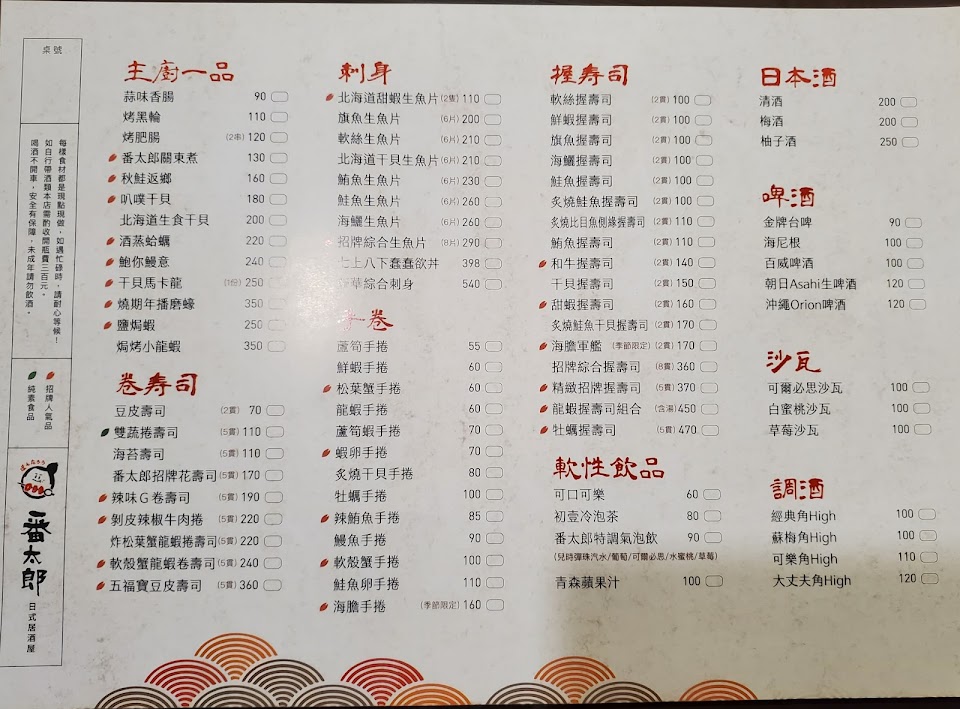 桌號
每樣食材都是現點現做，如遇忙碌時，請耐心等候！
如自行帶酒類本店需酌收開瓶費三百元。
喝酒不開車，安全有保障，未成年請勿飲酒。
招牌人氣品
純素食品
番太郎
日式居酒屋
主廚一品
蒜味香腸 90
烤黑輪 110
烤肥腸 (2串) 120
番太郎關東煮 130
秋鮭返鄉 160
叭噗干貝 180
北海道生食干貝 200
酒蒸蛤蠣 220
鮑你鰻意 240
干貝馬卡龍 (1份) 250
燒期年播磨蠔 350
鹽焗蝦 250
焗烤小龍蝦 350
卷寿司
豆皮壽司 (2貫) 70
雙蔬捲壽司 (5貫) 110
海苔壽司 (5貫) 110
番太郎招牌花壽司 (5貫) 170
辣味G卷壽司 (5貫) 190
剝皮辣椒牛肉捲 (5貫) 220
炸松葉蟹龍蝦捲壽司 (5貫) 220
軟殼蟹龍蝦卷壽司 (5貫) 240
五福寶豆皮壽司 (5貫) 360
刺身
北海道甜蝦生魚片 (2隻) 110
旗魚生魚片 (6片) 200
軟絲生魚片 (6片) 210
北海道干貝生魚片 (6片) 210
鮪魚生魚片 (6片) 230
鮭魚生魚片 (6片) 260
海鱺生魚片 (6片) 260
招牌綜合生魚片 (8片) 290
七上八下蠢蠢欲丼 398
華綜合刺身 540
卷
蘆筍手捲 55
鮮蝦手捲 60
松葉蟹手捲 60
龍蝦手捲 60
蘆筍蝦手捲 70
蝦卵手捲 70
炙燒干貝手捲 80
牡蠣手捲 100
辣鮪魚手捲 85
鰻魚手捲 90
軟殼蟹手捲 100
鮭魚卵手捲 110
海膽手捲 (季節限定) 160
握寿司
軟絲握壽司 (2貫) 100
鮮蝦握壽司 (2貫) 100
旗魚握壽司 (2貫) 100
海鱺握壽司 (2貫) 100
鮭魚握壽司 (2貫) 100
炙燒鮭魚握壽司 (2貫) 100
炙燒比目魚側緣握壽司 (2貫) 110
鮪魚握壽司 (2貫) 110
和牛握壽司 (2貫) 140
干貝握壽司 (2貫) 150
甜蝦握壽司 (2貫) 160
炙燒鮭魚干貝握壽司 (2貫) 170
海膽軍艦 (季節限定) (2貫) 170
招牌綜合握壽司 (8貫) 360
精緻招牌握壽司 (5貫) 370
龍蝦握壽司組合 (含湯) 450
牡蠣握壽司 (5貫) 470
軟性飲品
可口可樂 60
初壹冷泡茶 80
番太郎特調氣泡飲 90
(兒時彈珠汽水/葡萄/可爾必思/水蜜桃/草莓)
青森蘋果汁 100
日本酒
清酒 200
梅酒 200
柚子酒 250
啤酒
金牌台啤 90
海尼根 100
百威啤酒 100
朝日Asahi生啤酒 120
沖繩Orion啤酒 120
沙瓦
可爾必思沙瓦 100
白蜜桃沙瓦 100
草莓沙瓦 100
調酒
經典角High 100
蘇梅角High 100
可樂角High 110
大丈夫角High 120